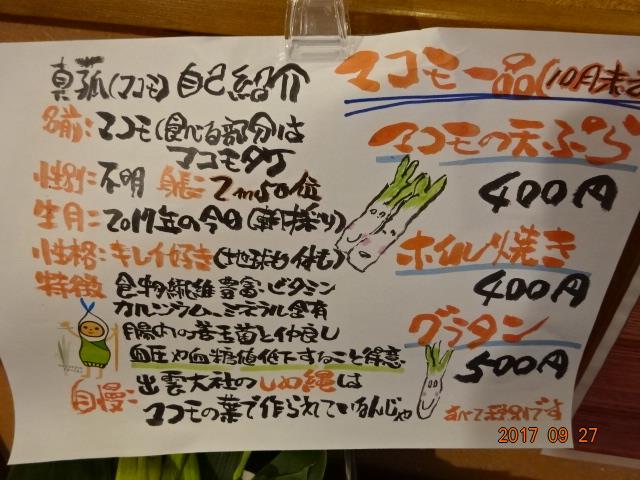 真菰(マコモ)自己紹介
名前:マコモ(食べる部分は
マコモタケ
性別:不明 身長:2m50位
生月:2017年の今日(朝採り)
性格:キレイ好き(地球も体も)
特徴 食物繊維豊富・ビタミン
カルシウム、ミネラル含有
腸内の善玉菌と仲良し
血圧や血糖値低下すること得意
自慢:出雲大社のしめ縄は
マコモの葉で作られているんじゃ
マコモ一品(10月末まで
マコモの天ぷら
400円
ホイル焼き
400円
グラタン
500円
すべて税別です
2017 09 27